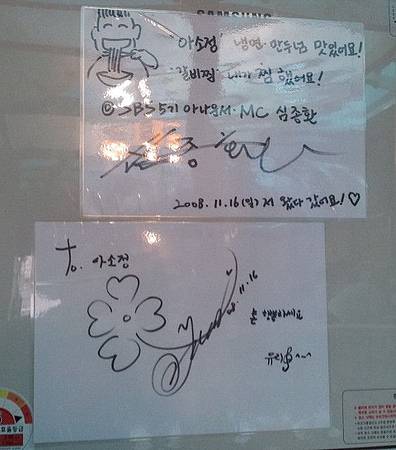 SAMSUNG
"아소정" 냉면·만두님 맛있어요!
"갈비찜" 내가 찜했어요!
ⓒ>B>5기 아나운서·MC 심종환
심종환
2008.11.16(일) 저 왔다 갔어요!♡
To. 아소정
08.11.16
늘 행복하세요
유리 ^~^